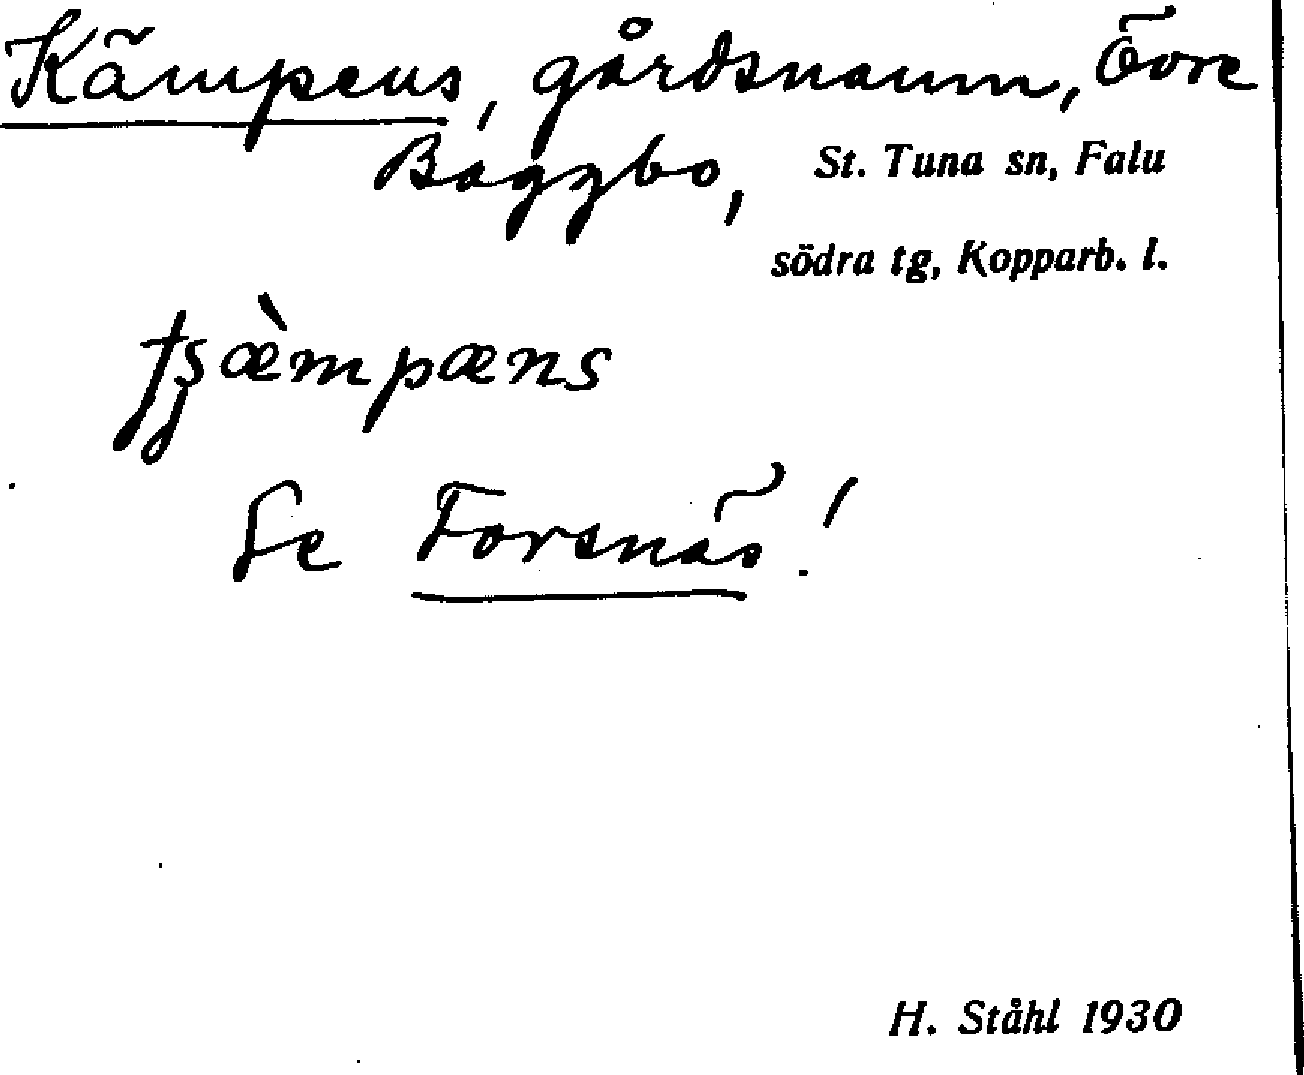 Kämpens, gårdsnamn, Övre
Baggbo, St. Tuna sn, Falu
södra tg, Kopparb. l.
Se Forsnäs!
H. Ståhl 1930